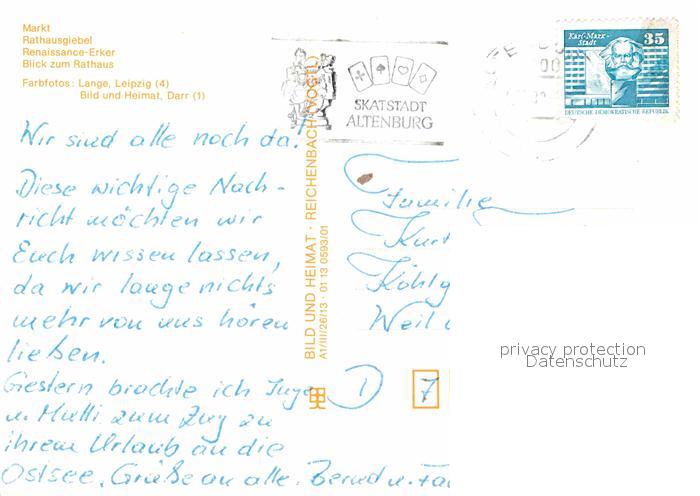 Markt
Rathausgiebel
Renaissance-Erker
Blick zum Rathaus
Farbfotos: Lange, Leipzig (4)
Bild und Heimat, Darr (1)
Wir sind alle noch da!
Diese wichtige Nach-
richt möchten wir
Euch wissen lassen,
da wir lange nichts
mehr von uns hören
ließen.
Gestern brachte ich Inge
u. Mutti zum Zug zu
ihrem Urlaub an die
Ostsee. Grüße an alle. Bernd u. Fa
BILD UND HEIMAT · REICHENBACH (VOGTL)
A1/III/26/13 · 01 13 0593/01
SKATSTADT
ALTENBURG
Karl-Marx-
Stadt
35
DEUTSCHE DEMOKRATISCHE REPUBLIK
Familie
Kurt
Weil
D 7
privacy protection
Datenschutz